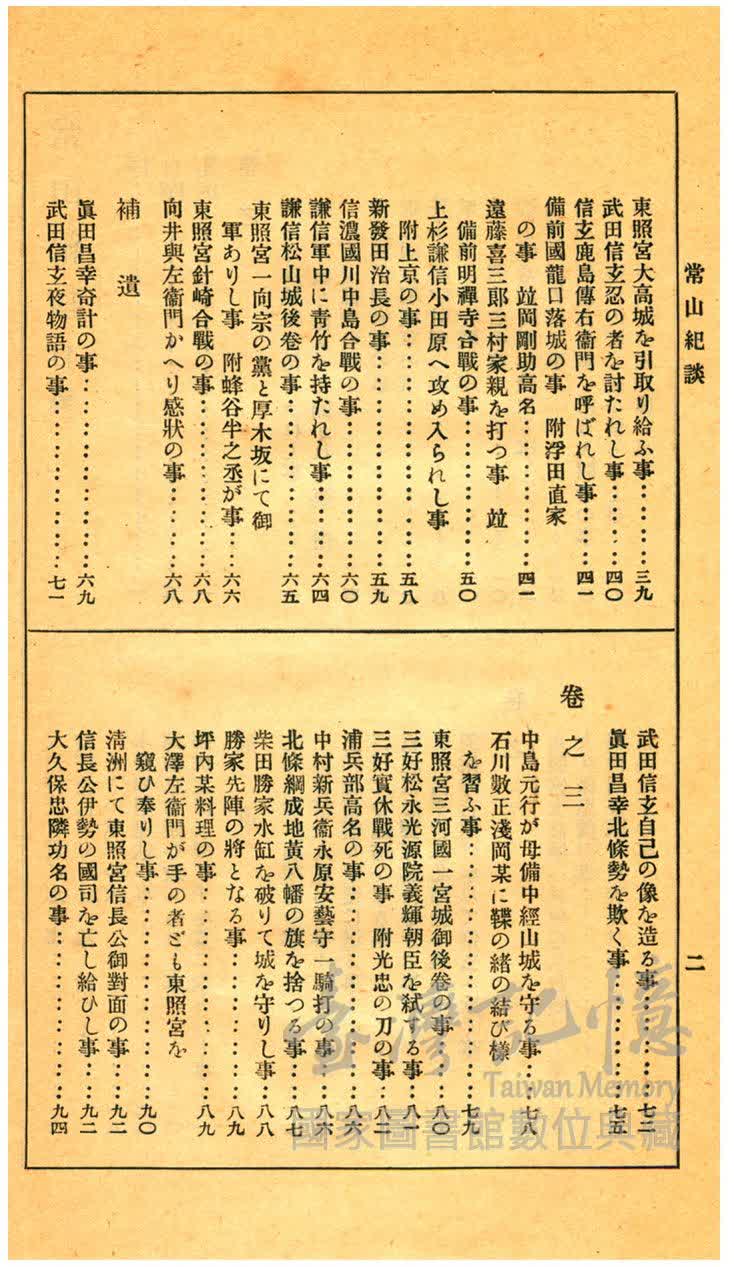 常山紀談
二
東照宮大高城を引取り給ふ事………三九
武田信玄忍の者を討たれし事………四〇
信玄鹿島傳右衞門を呼ばれし事………四一
備前國龍口落城の事　附浮田直家
の事　竝岡剛助高名………四一
遠藤喜三郎三村家親を打つ事　竝
備前明禪寺合戰の事………五〇
上杉謙信小田原へ攻め入られし事
附上京の事………五八
新發田治長の事………五九
信濃國川中島合戰の事………六〇
謙信軍中に靑竹を持たれし事………六四
謙信松山城後卷の事………六五
東照宮一向宗の黨と厚木坂にて御
軍ありし事　附蜂谷半之丞が事………六六
東照宮針崎合戰の事………六八
向井與左衞門かへり感狀の事………六八
補遺
眞田昌幸奇計の事………六九
武田信玄夜物語の事………七一
武田信玄自己の像を造る事………七二
眞田昌幸北條勢を欺く事………七五
卷之三
中島元行が母備中經山城を守る事………七八
石川數正淺岡某に鞢の緖の結び樣
を習ふ事………七九
東照宮三河國一宮城御後卷の事………八〇
三好松永光源院義輝朝臣を弑する事………八一
三好實休戰死の事　附光忠の刀の事………八二
浦兵部高名の事………八六
中村新兵衞永原安藝守一騎打の事………八六
北條綱成地黃八幡の旗を捨つる事………八七
柴田勝家水缸を破りて城を守りし事………八八
勝家先陣の將となる事………八九
坪內某料理の事………八九
大澤左衞門が手の者ども東照宮を
窺ひ奉りし事………九〇
淸洲にて東照宮信長公御對面の事………九二
信長公伊勢の國司を亡し給ひし事………九二
大久保忠隣功名の事………九四
臺灣記憶
Taiwan Memory
國家圖書館數位典藏